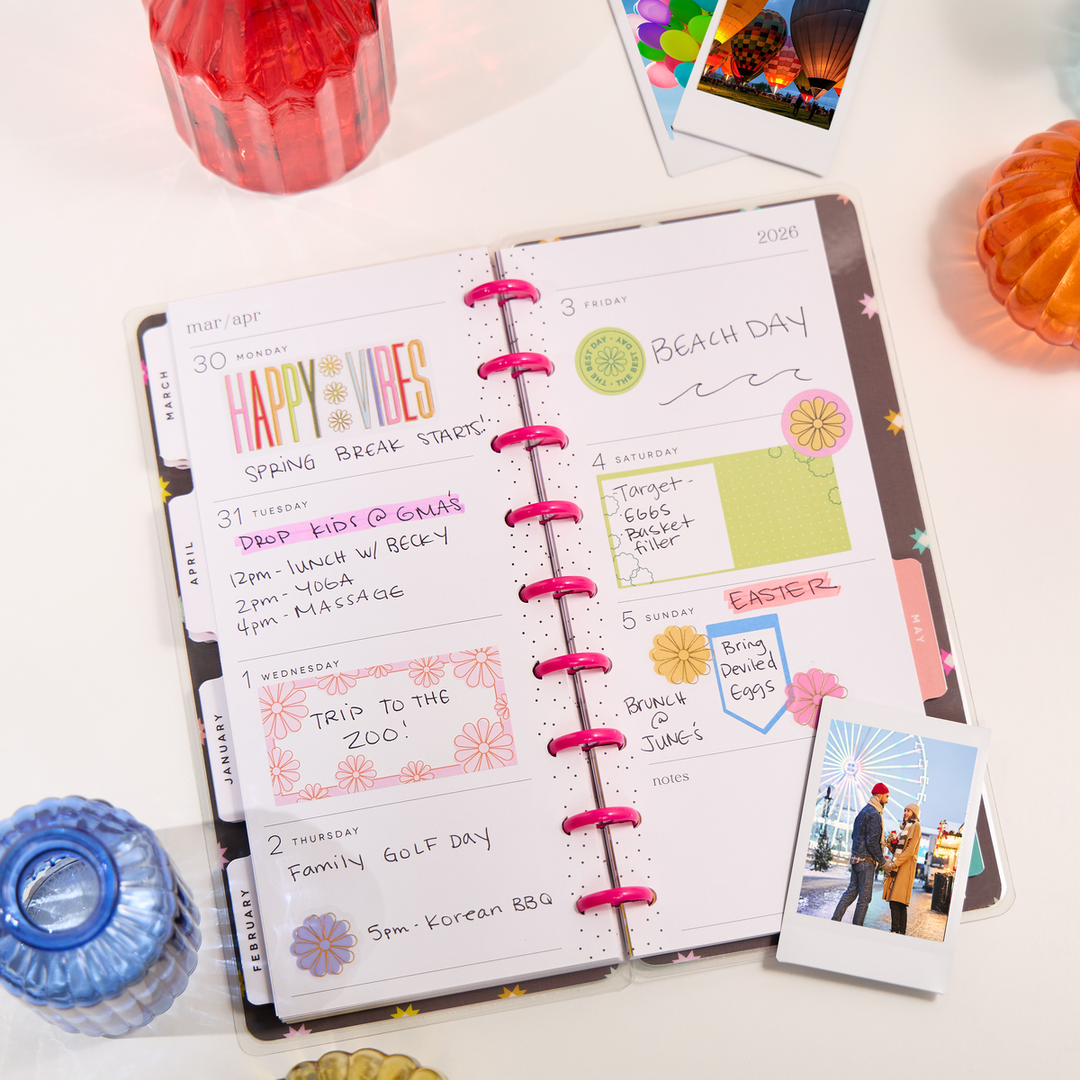 mar/apr
30 MONDAY
HAPPY VIBES
SPRING BREAK STARTS!
31 TUESDAY
DROP KIDS @ GMA'S
12pm - LUNCH W/ BECKY
2pm - YOGA
4pm - MASSAGE
1 WEDNESDAY
TRIP TO THE
ZOO!
2 THURSDAY
Family GOLF DAY
5pm - Korean BBQ
2026
3 FRIDAY
THE BEST DAY • THE BEST DAY •
BEACH DAY
4 SATURDAY
Target -
EGGS
Basket
filler
5 SUNDAY
EASTER
Bring
Deviled
Eggs
BRUNCH
@
JUNE'S
notes
MARCH
APRIL
JANUARY
FEBRUARY
MAY